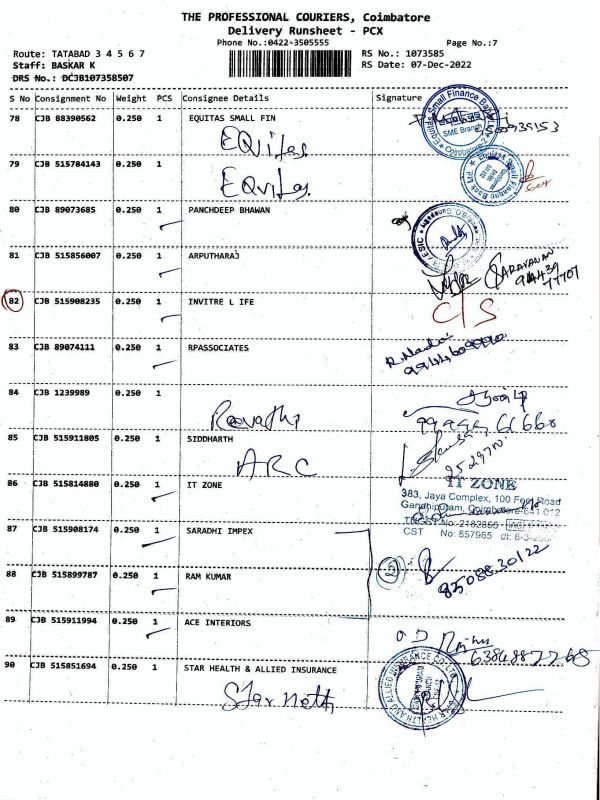 THE PROFESSIONAL COURIERS, Coimbatore
Delivery Runsheet - PCX
Phone No.:0422-3505555 Page No.:7
Route: TATABAD 3 4 5 6 7 RS No.: 1073585
Staff: BASKAR K RS Date: 07-Dec-2022
DRS No.: DCJB107358507
S No Consignment No Weight PCS Consignee Details Signature
78 CJB 88390562 0.250 1 EQUITAS SMALL FIN
Equitas
Equitas Small Finance Bank
SME Branch
Coimbatore
79 CJB 515784143 0.250 1
Equitas
Equitas Small Finance Bank Ltd.
80 CJB 89073685 0.250 1 PANCHDEEP BHAWAN
ESIC
81 CJB 515856007 0.250 1 ARPUTHARAJ
SARAVANAN
94439
77707
82 CJB 515908235 0.250 1 INVITRE L IFE
C/S
83 CJB 89074111 0.250 1 RPASSOCIATES
84 CJB 1239989 0.250 1
Revathi
85 CJB 515911805 0.250 1 SIDDHARTH
ARC
86 CJB 515814880 0.250 1 IT ZONE
IT ZONE
383, Jaya Complex, 100 Feet Road
Gandhipuram, Coimbatore-641 012
TNGST No: 2182866
CST No: 857965 dt: 6-3-
87 CJB 515908174 0.250 1 SARADHI IMPEX
2
8508830122
88 CJB 515899787 0.250 1 RAM KUMAR
89 CJB 515911994 0.250 1 ACE INTERIORS
6384887768
90 CJB 515851694 0.250 1 STAR HEALTH & ALLIED INSURANCE
Star heth
STAR HEALTH AND ALLIED INSURANCE CO. LTD